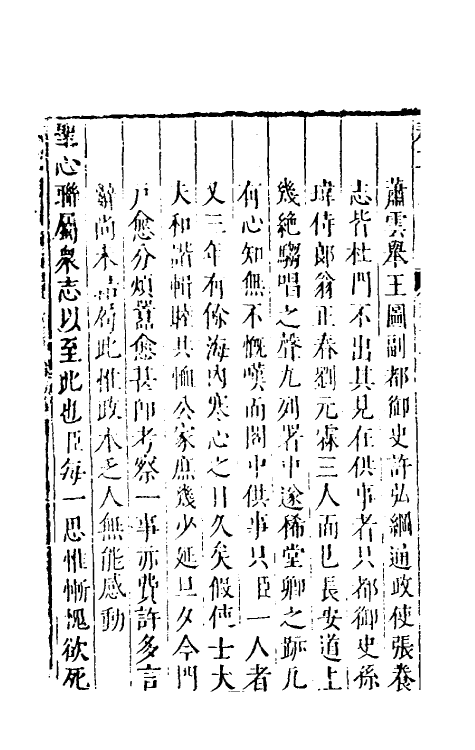 蕭雲舉王圖副都御史許弘綱通政使張養
志皆杜門不出其見在供事者只都御史孫
瑋侍郎翁正春劉元霖三人而已長安道上
幾絶騶唱之聲九列署中遂稀堂卿之跡凡
有心知無不慨嘆而閣中供事只臣一人者
又三年有餘海內寒心之日久矣假使士大
夫和諧輯睦共恤公家庶幾少延旦夕今門
戶愈分煩囂愈甚即考察一事亦費許多言
論尚未結局此惟政本乏人無能感動
聖心聯屬衆志以至此也臣每一思惟慚愧欲死